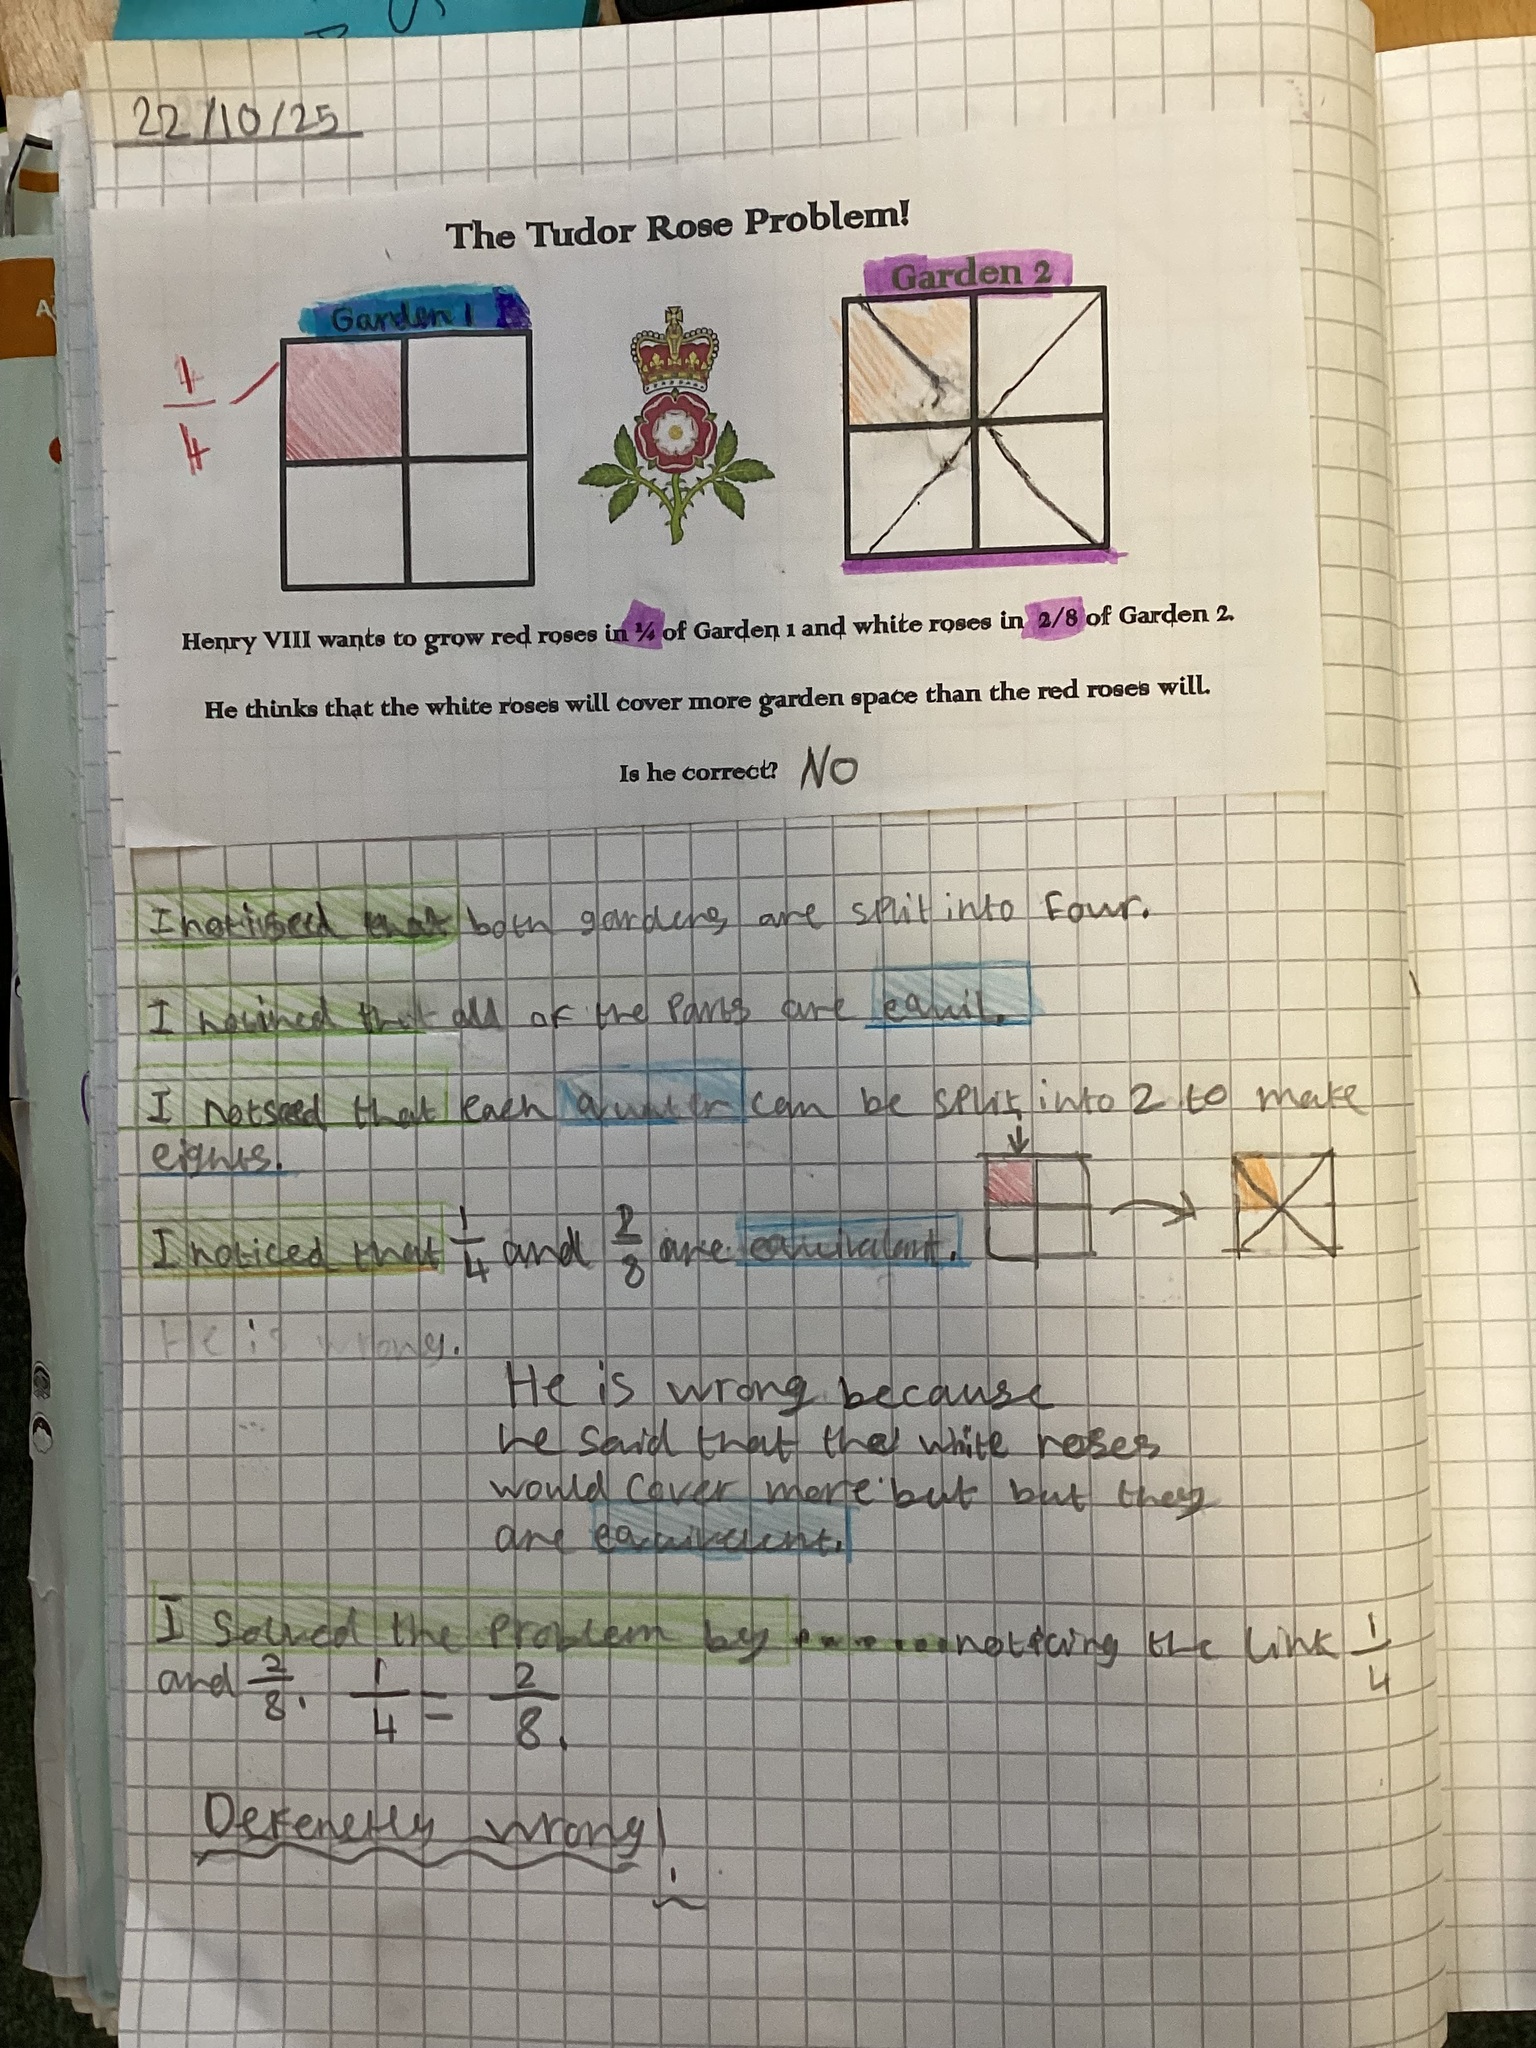 22/10/25
The Tudor Rose Problem!
Garden 1
Garden 2
1
4
Henry VIII wants to grow red roses in ¼ of Garden 1 and white roses in 2/8 of Garden 2.
He thinks that the white roses will cover more garden space than the red roses will.
Is he correct? NO
I notised that both gardens are split into Four.
I noticed that all of the Parts are equil.
I notsed that each qurter can be split into 2 to make
eights.
I noticed that 1/4 and 2/8 are equivalent.
He is wrong.
He is wrong because
he said that the white roses
would cover more but but they
are equivelent.
I Solved the Problem by noticing the link 1/4
and 2/8. 1/4 = 2/8.
Defenetly wrong!